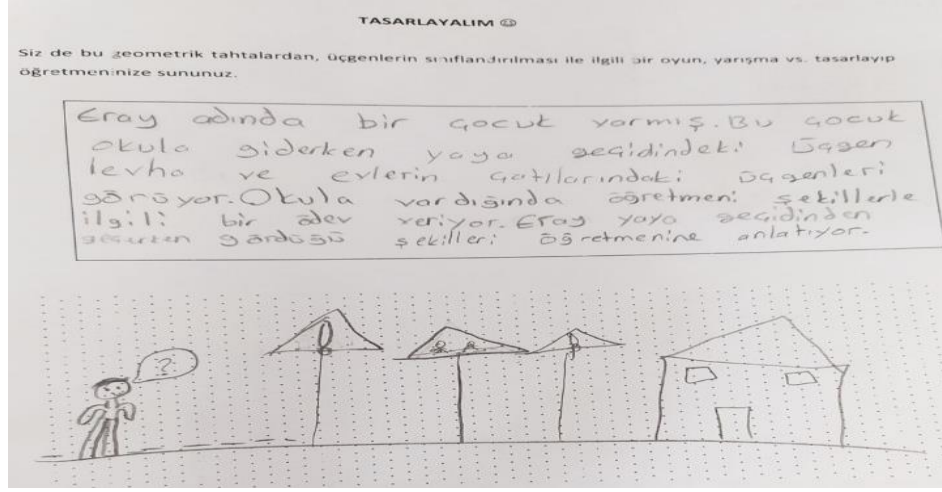 TASARLAYALIM ☺
Siz de bu geometrik tahtalardan, üçgenlerin sınıflandırılması ile ilgili bir oyun, yarışma vs. tasarlayıp
öğretmeninize sununuz.
Eray adında bir çocuk varmış. Bu çocuk
okula giderken yaya geçidindeki üçgen
levha ve evlerin çatılarındaki üçgenleri
görüyor. Okula vardığında öğretmeni şekillerle
ilgili bir ödev veriyor. Eray yaya geçidinden
geçerken gördüğü şekilleri öğretmenine anlatıyor.
?